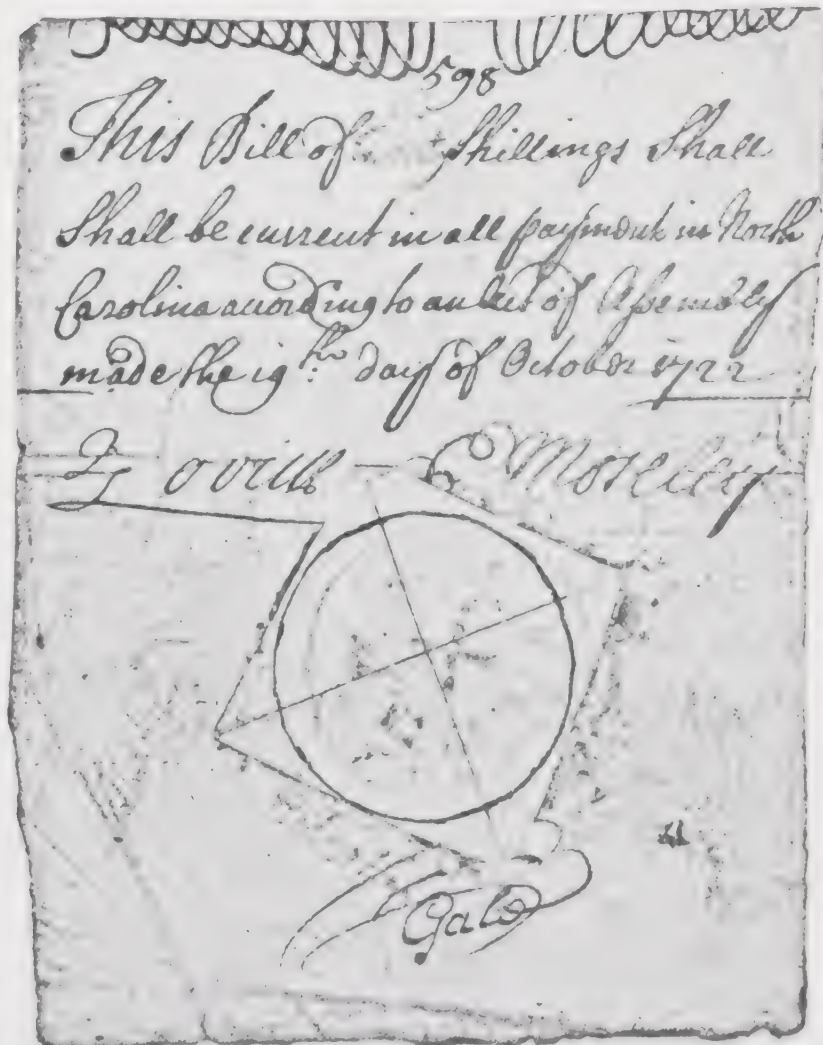 598
This Bill of Shillings Shall
Shall be current in all payments in North
Carolina according to an Act of Assembly
made the 19th day of October 1722
Lovick Moseley
Gale